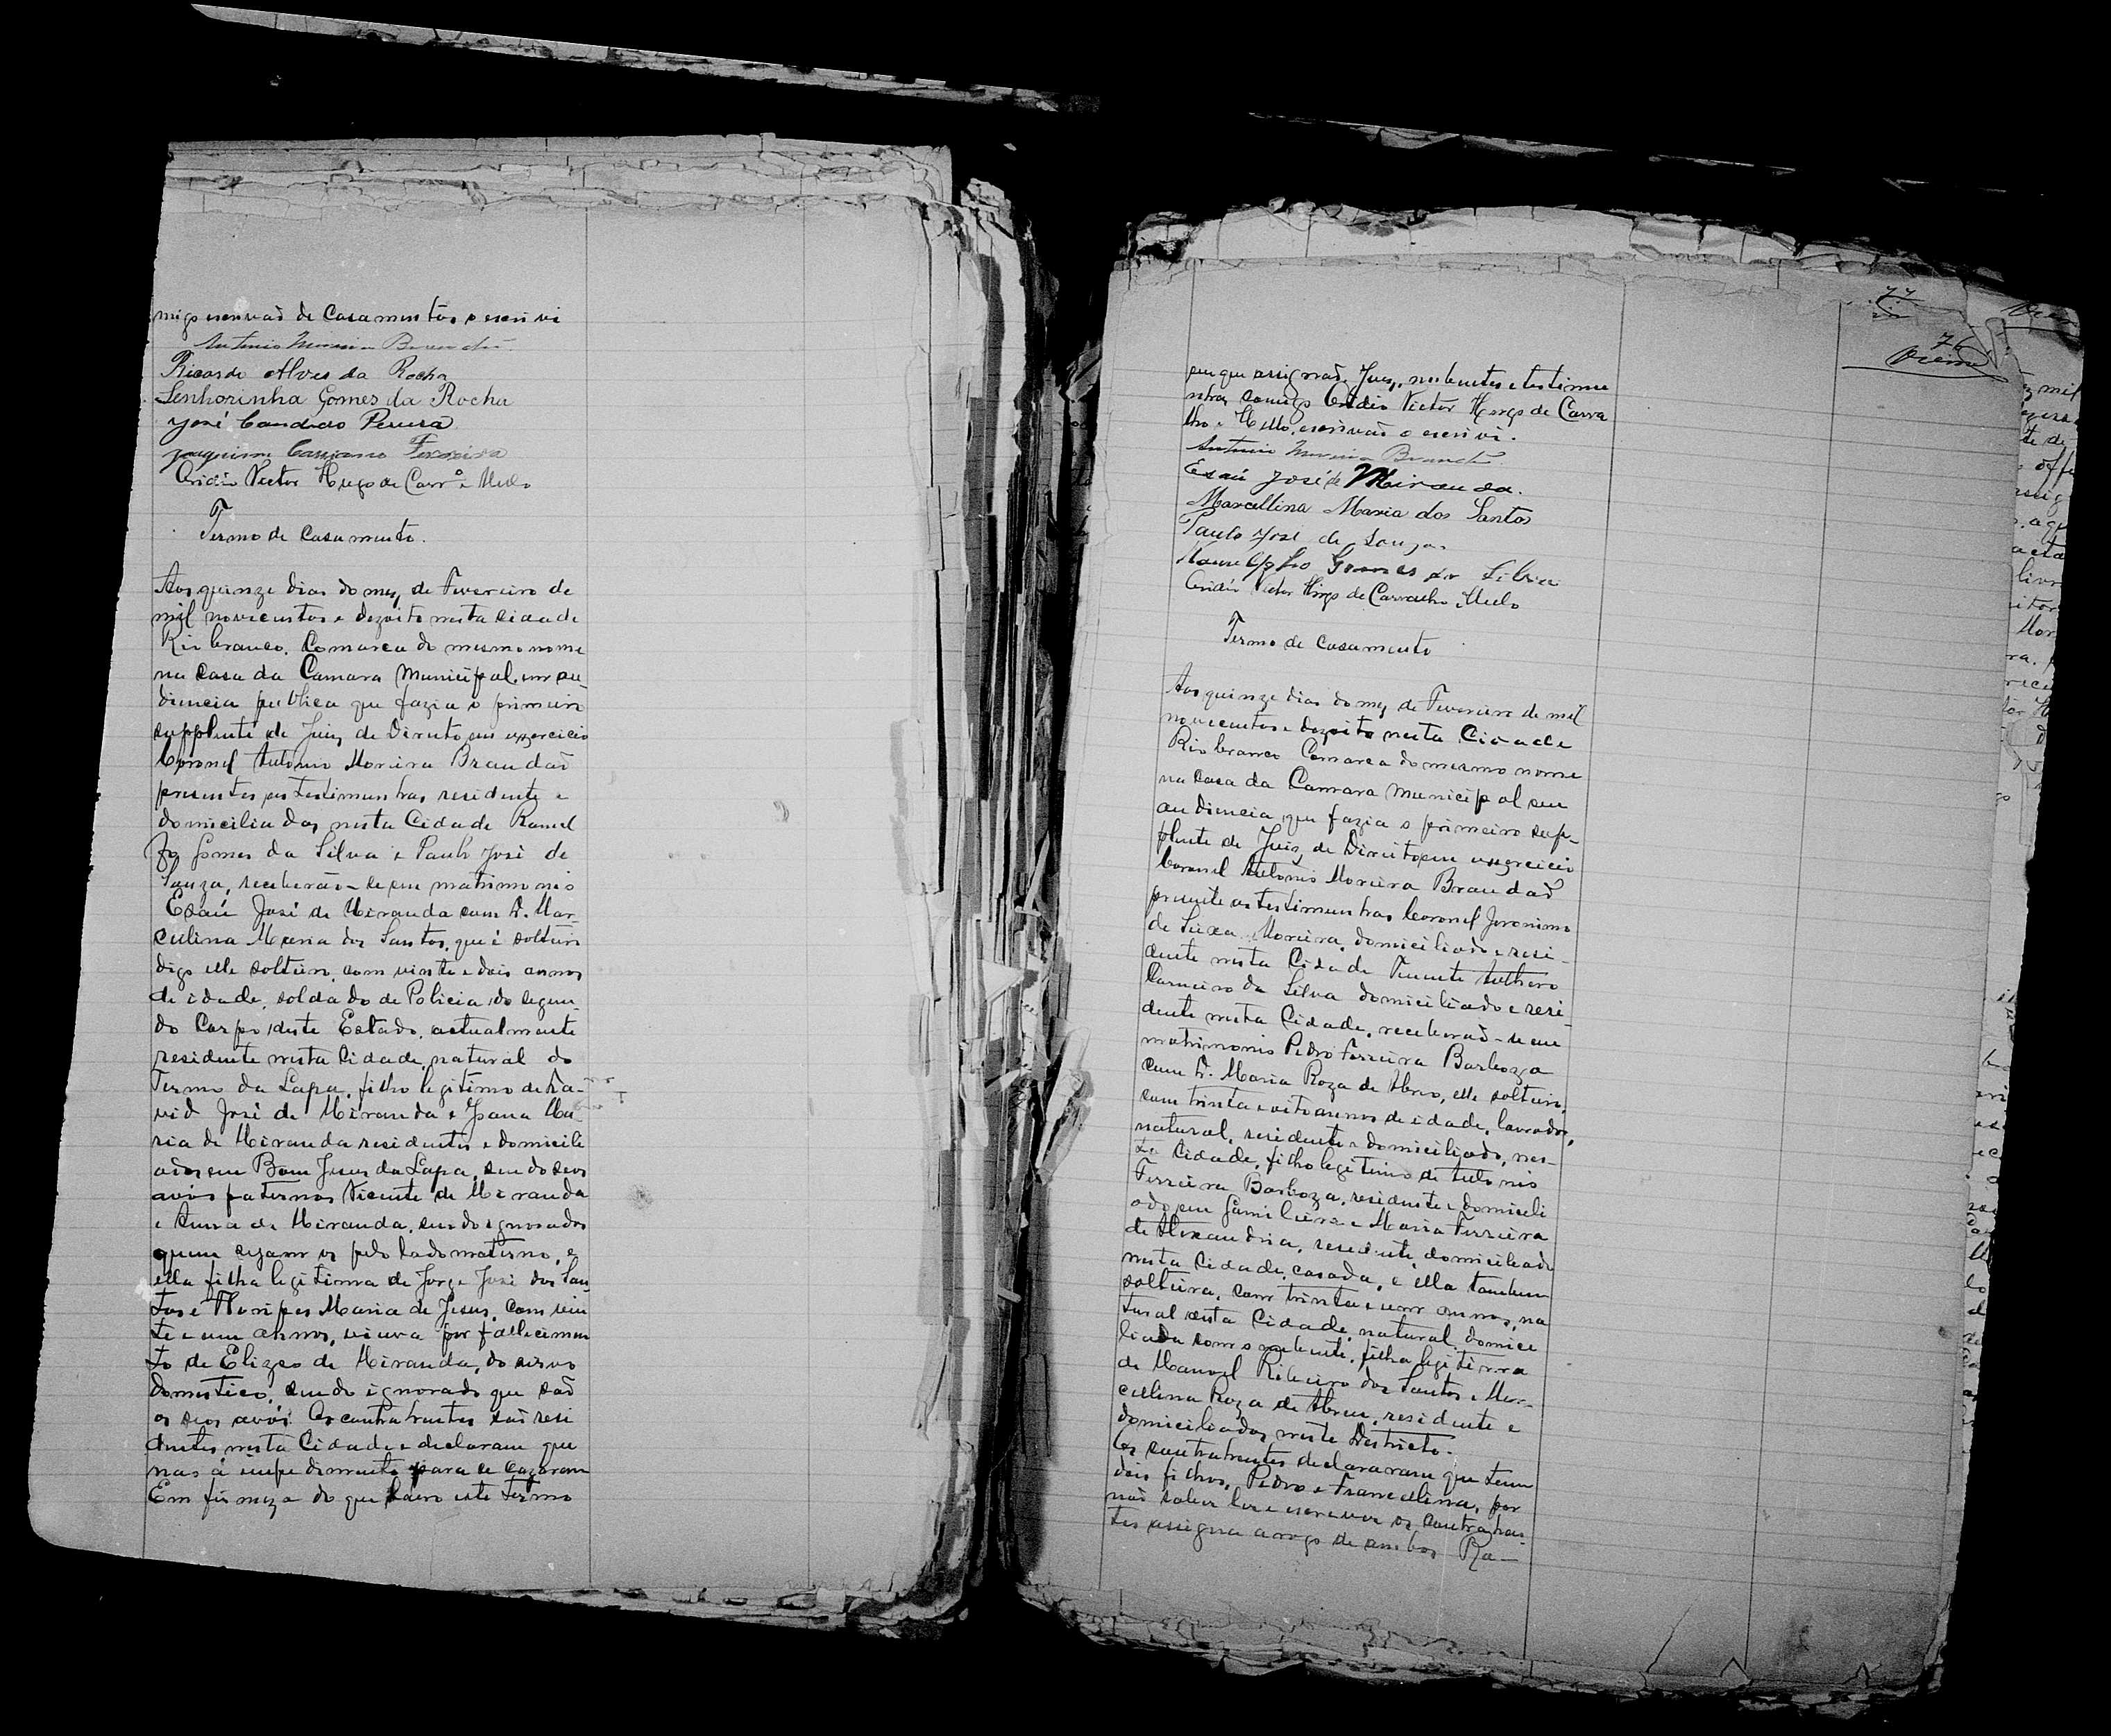 migo escrivaõ de Casamentos o escrivi
Antonio Moreira Brandão
Ricardo Alves da Rocha
Senhorinha Gomes da Rocha
José Candido Pereira
Joaquim Ferreira
Victor Hugo de Carrº e Mello
Termo de Casamento.
Aos quinze dias do mez de Fevereiro de
mil novecentos e dezoito nesta cidade
Rio branco, Comarca do mesmo nome
na casa da Camara Municipal, em au-
diencia publica que fazia o primeiro
supplente de Juiz de Direito, em exercicio
Coronel Antonio Moreira Brandaõ
presentes as testimunhas, residente e
domiciliadas nesta Cidade
Gomes da Silva e Paulo José de
Souza, receberão-se em matrimonio
Esaú José de Miranda com D. Mar-
culina Maria dos Santos, que é solteiro
digo elle solteiro, com vinte e dois annos
de idade, soldado de Policia do segun-
do Corpo deste Estado, actualmente
residente nesta Cidade, natural do
Termo da Lapa, filho legitimo de Da-
vid José de Miranda e Joana Ma
ria de Miranda residentes e domicili
ados em Bom Jesus da Lapa, sendo seos
avós paternos Vicente de Miranda
e Anna de Miranda, sendo ignorados
quem sejam os pelo lado materno, e
ella filha legitima de Jorge José dos San
tos e Maria de Jesus, com vin
te e um annos, viuva por fallecimen
to de Elizeo de Miranda, do serviço
domestico, sendo ignorado que saõ
os seos avós. Os contrahentes saõ resi
dentes nesta Cidade e declaram que
nao á impedimento para se cazarem
Em firmeza do que lavro este termo
77
76
em que assignaõ Juiz, nubentes e testimu
nhas comigo Victor Hugo de Carva
lho e Mello, escrivaõ o escrivi.
Antonio Moreira Brandão
Esaú José de Miranda.
Marcellina Maria dos Santos
Paulo José de Souza
Gomes da Silva
Victor Hugo de Carvalho e Mello
Termo de Casamento
Aos quinze dias do mez de Fevereiro de mil
novecentos e dezoito nesta Cidade
Rio branco Comarca do mesmo nome
na Casa da Camara Municipal em
audiencia, que fazia o primeiro sup-
plente de Juiz de Direito em exercicio
Coronel Antonio Moreira Brandaõ
presente as testimunhas Coronel Jeronimo
de Moreira, domiciliado e resi-
dente nesta Cidade Tenente Anthero
Carneiro da Silva domiciliado e resi-
dente nesta Cidade, receberaõ-se em
matrimonio Pedro Ferreira Barboza
com D. Maria Roza de Abreo, elle solteiro,
com trinta e oito annos de idade, lavrador,
natural, residente e domiciliado, nes-
ta Cidade, filho legitimo de Antonio
Ferreira Barboza, residente e domicili
ado em e Maria Ferreira
de Alexandria, residente, domiciliada
nesta Cidade, casada, e ella tambem
solteira, com trinta e um annos, na
tural desta Cidade, natural, domici
liada com o nubente, filha legitima
de Manoel Ribeiro dos Santos e Mar-
cullina Roza de Abreu, residente e
domiciliados neste Districto.
Os contrahentes declararam que tem
dois filhos, Pedro e Francellina, por
naõ saber ler e escrever os contrahen-
tes assigna a rogo de ambos Ra-